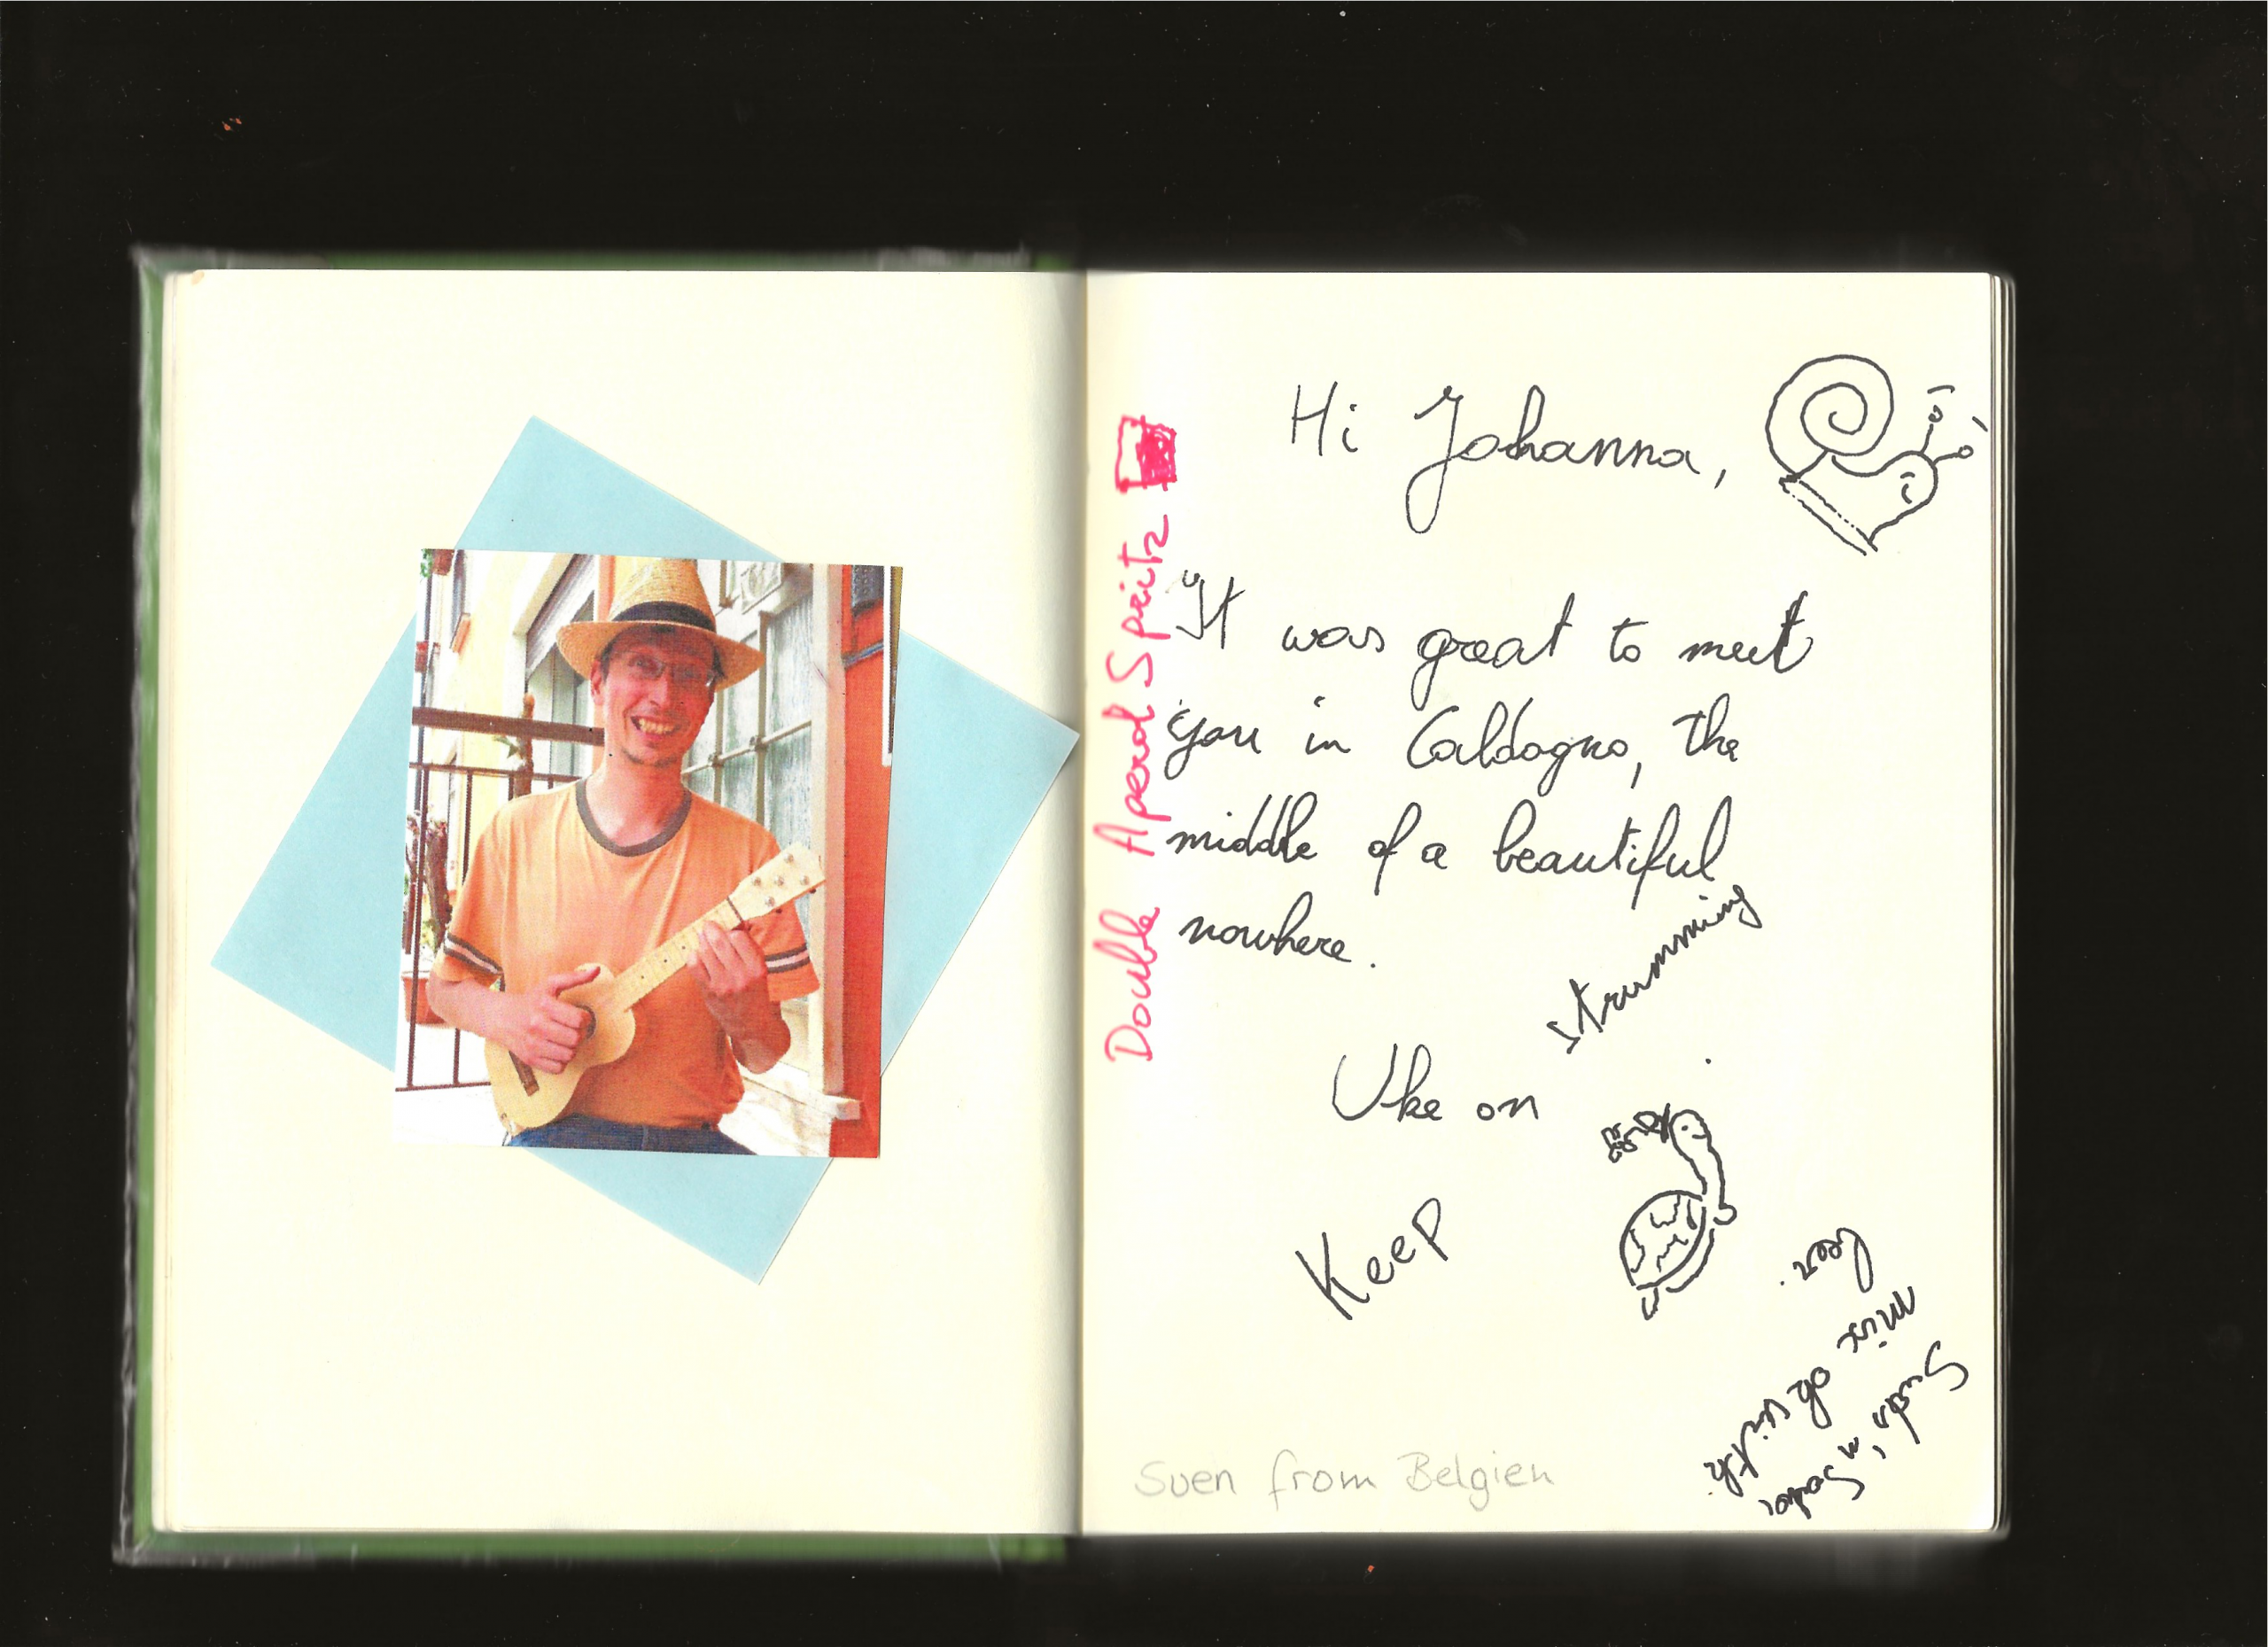 Hi Johanna,
It was great to meet
you in Caldogno, the
middle of a beautiful
nowhere.
strumming
Uke on
Keep
Double Aperol Spritz
mix of
beer.
Sven from Belgien